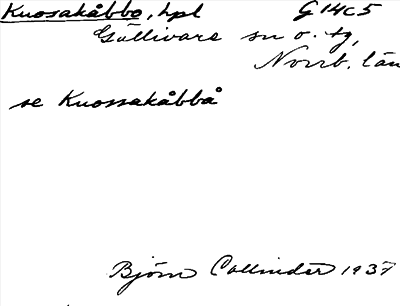 Kuosakåbbo, hpl G 14c5
Gällivare sn o. tg,
Norrb. län
se Kuossakåbbå
Björn Collinder 1937